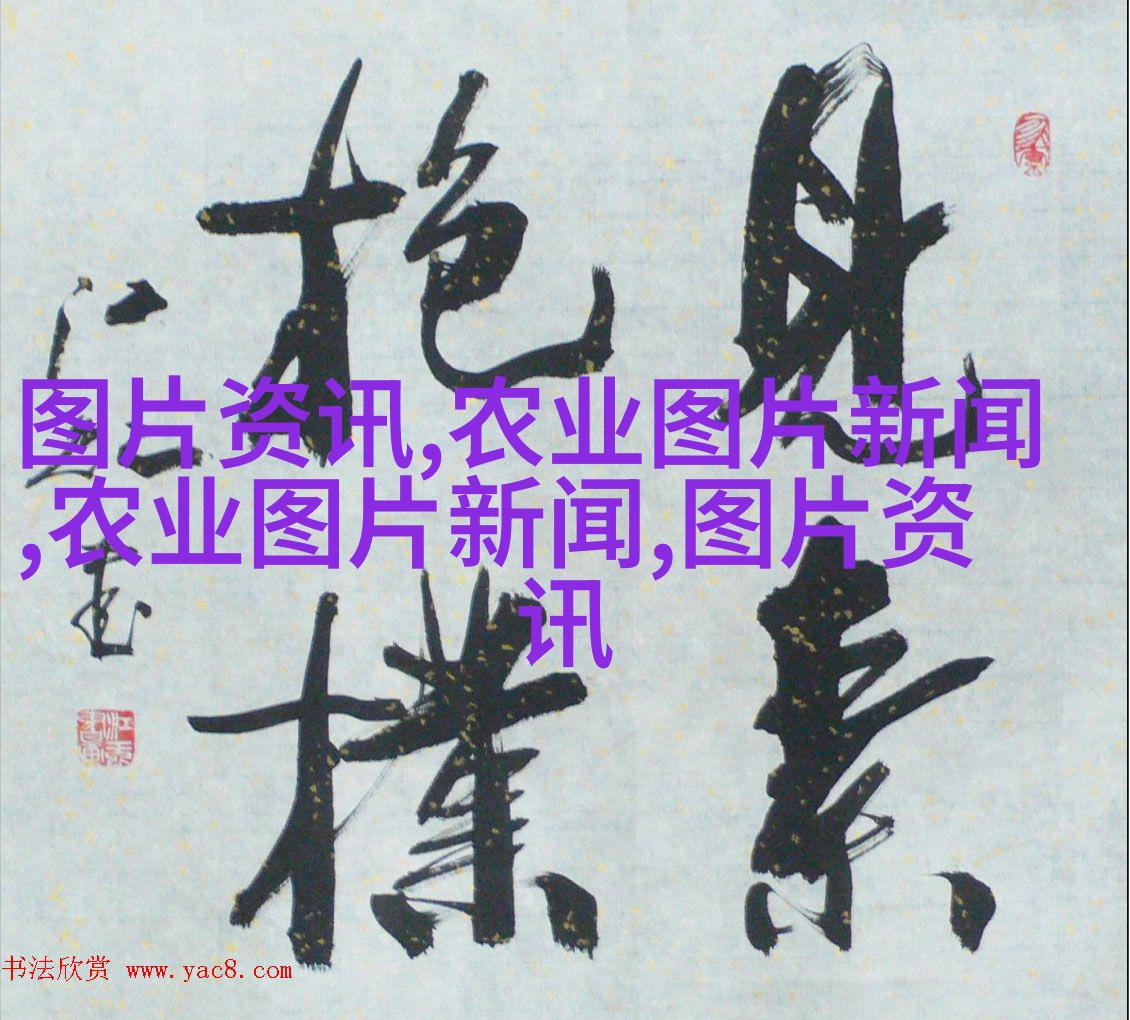 見素
抱樸
江雪
書
图片资讯,农业图片新闻
,农业图片新闻,图片资
讯
书法欣赏 www.yac8.com